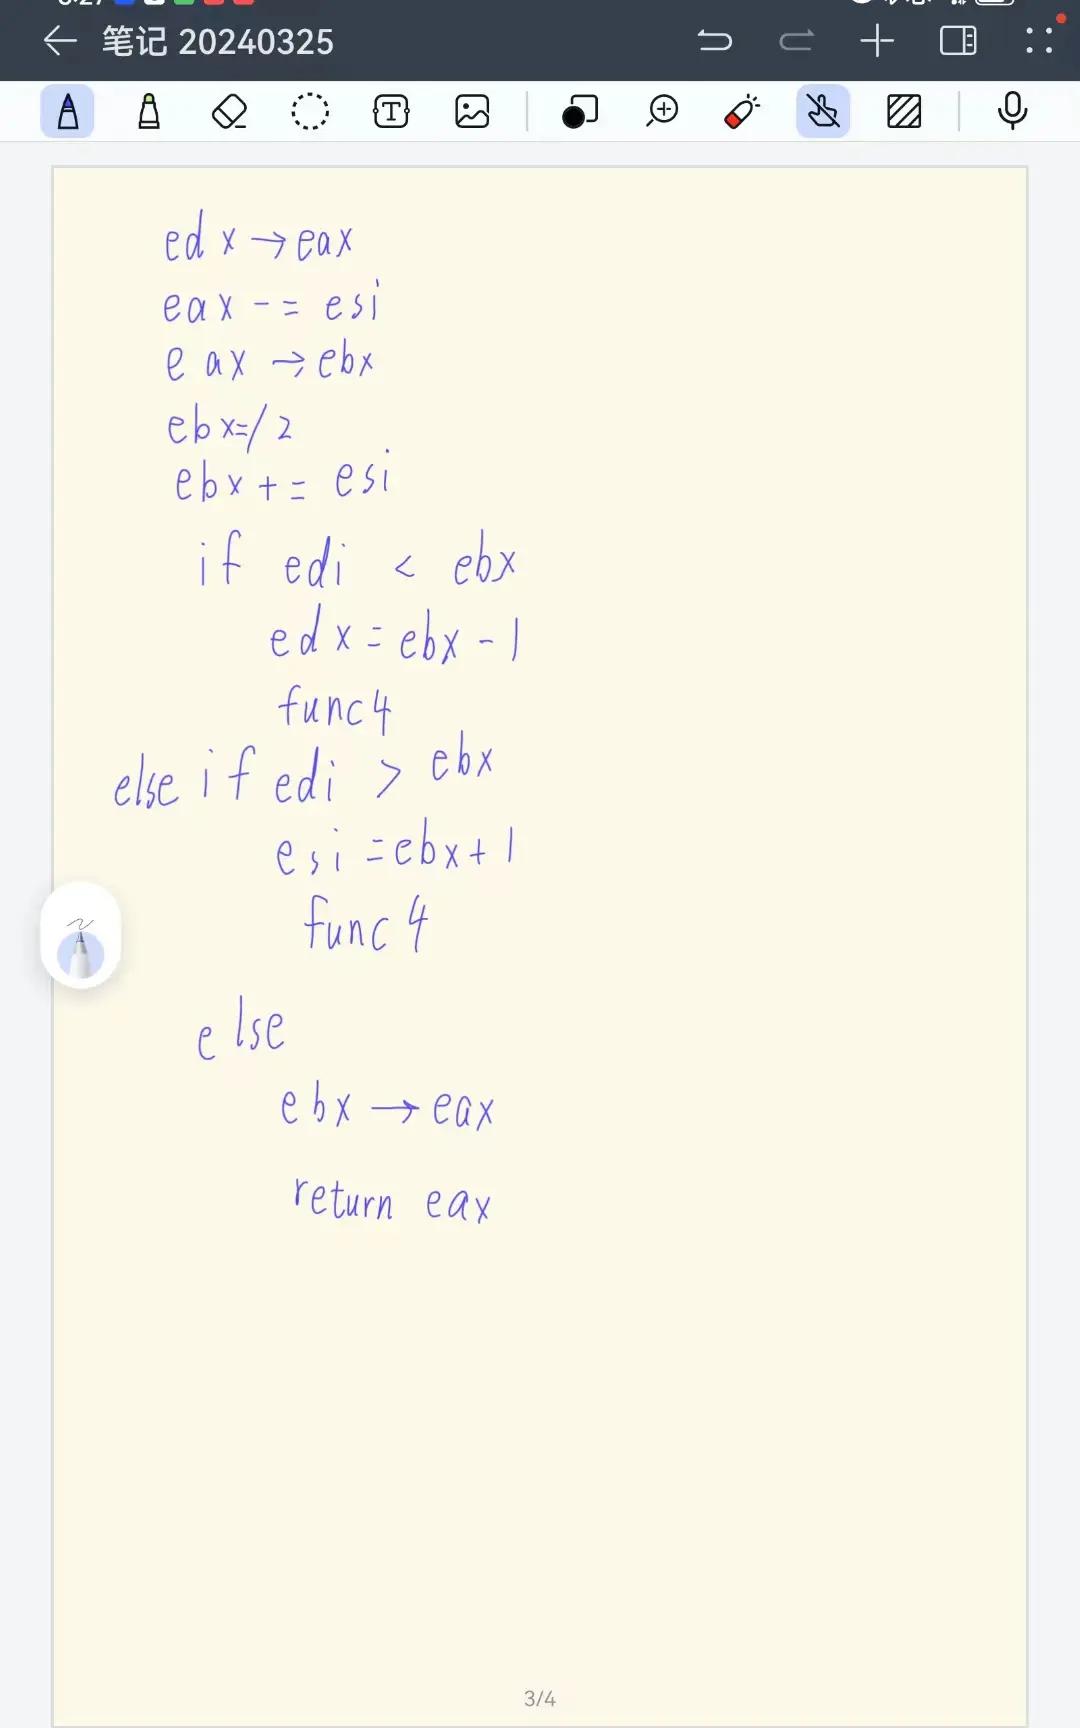 笔记 20240325
edx→eax
eax -= esi
eax→ebx
ebx=/2
ebx += esi
if edi < ebx
edx = ebx - 1
func4
else if edi > ebx
esi = ebx + 1
func4
else
ebx→eax
return eax
3/4